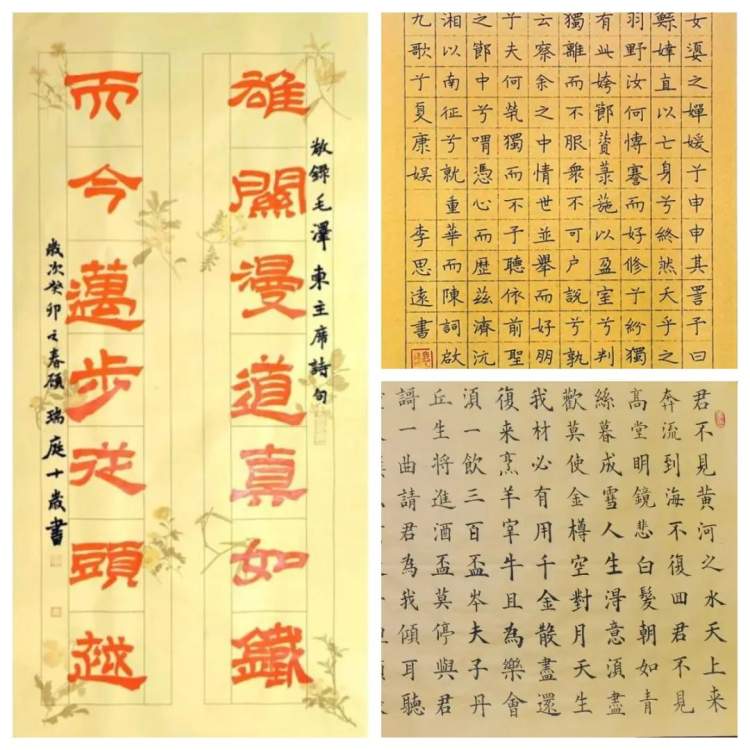 敬錄毛澤東主席詩句
雄關漫道真如鐵
而今邁步從頭越
歲次癸卯之春顧瑞庭十歲書
女嬃之嬋媛兮申申其詈予曰
鯀婞直以亡身兮終然夭乎之
羽野汝何博謇而好修兮紛獨
有此姱節薋菉葹以盈室兮判
獨離而不服眾不可户說兮孰
云察余之中情世並舉而好朋
兮夫何煢獨而不予聽依前聖
之節中兮喟憑心而歷茲濟沅
湘以南征兮就重華而陳詞啟
九歌兮夏康娛 李思遠書
君不見黃河之水天上來
奔流到海不復回君不見
高堂明鏡悲白髮朝如青
絲暮成雪人生得意須盡
歡莫使金樽空對月天生
我材必有用千金散盡還
復来烹羊宰牛且為樂會
須一飲三百盃岑夫子丹
丘生將進酒盃莫停與君
謌一曲請君為我傾耳聽